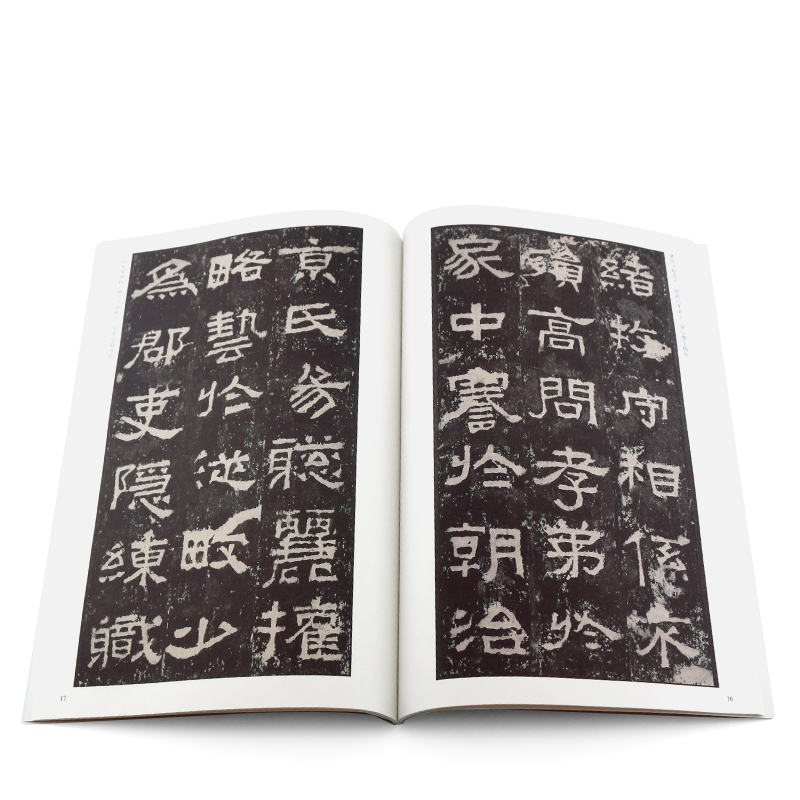 緒牧守相係不
殞高問孝弟於
家中謇於朝治
16
京氏易聰麗權
略藝於從畋少
為郡吏隱練職
17